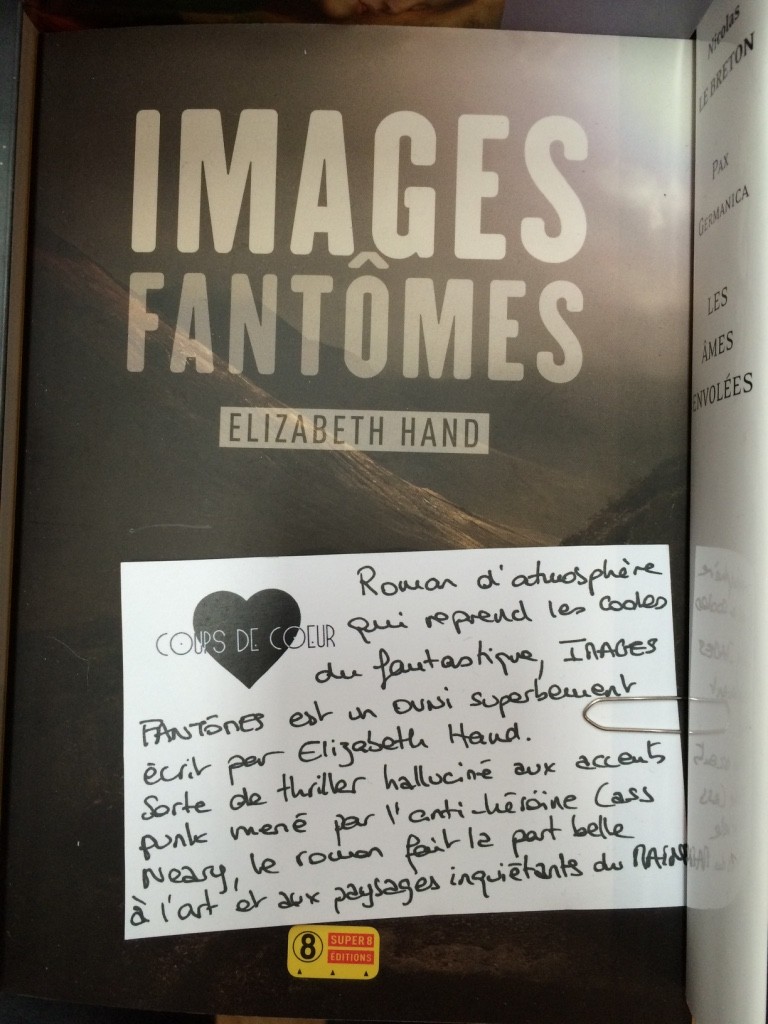 IMAGES
FANTÔMES
ELIZABETH HAND
COUPS DE COEUR
Roman d'atmosphère
qui reprend les codes
du fantastique, IMAGES
FANTÔMES est un OVNI superbement
écrit par Elizabeth Hand.
Sorte de thriller halluciné aux accents
punk mené par l'anti-héroïne Cass
Neary, le roman fait la part belle
à l'art et aux paysages inquiétants du MAINE
8 SUPER 8
EDITIONS
Nicolas
LE BRETON
PAX
GERMANICA
LES
ÂMES
ENVOLÉES